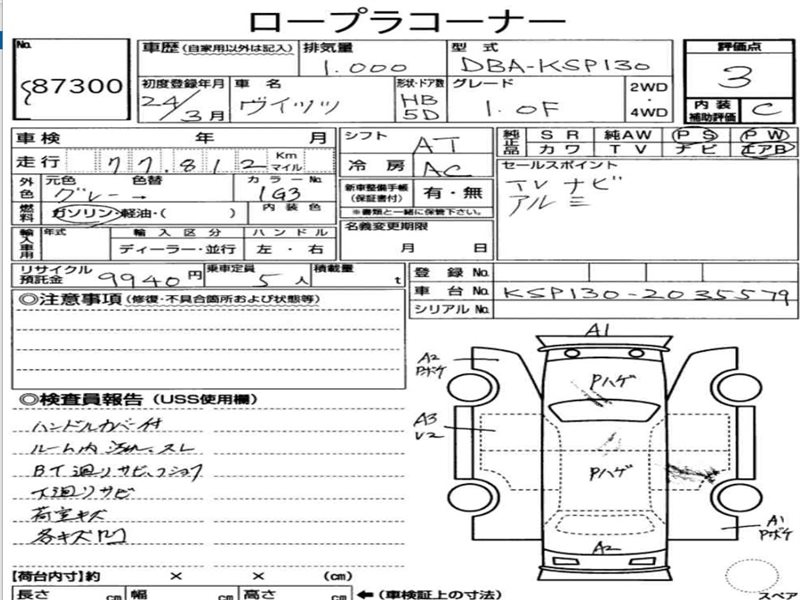 ロープラコーナー
No.
87300
車歴 (自家用以外は記入)
排気量
1.000
型式
DBA-KSP130
評価点
3
内装
補助評価
C
初度登録年月
24/3月
車名
ヴィッツ
形状・ドア数
HB
5D
グレード
1.0F
2WD
・
4WD
車検 年 月
シフト
AT
純正品
SR 純AW PS PW
カワ TV ナビ エアB
走行 77.812 Km マイル
冷房
AC
セールスポイント
TVナビ
アルミ
外色
元色 色替
グレー →
カラーNo.
1G3
新車整備手帳
(保証書付)
有・無
※書類と一緒に保管下さい。
燃料
ガソリン・軽油・( )
内装色
名義変更期限
月 日
輸入車用
年式
輸入区分
ディーラー・並行
ハンドル
左・右
リサイクル
預託金
9940円
乗車定員
5人
積載量
t
登録No.
車台No.
KSP130-2035579
シリアルNo.
◎注意事項 (修復・不具合箇所および状態等)
◎検査員報告 (USS使用欄)
ハンドルカバー付
ルーム内 汚れ、スレ
下廻りサビ
荷室キズ
各キズ凹
A1
A2
Pボケ
Pハゲ
A3
V2
Pハゲ
A2
A1
Pボケ
スペア
【荷台内寸】約 × × (cm)
長さ cm 幅 cm 高さ cm ←(車検証上の寸法)